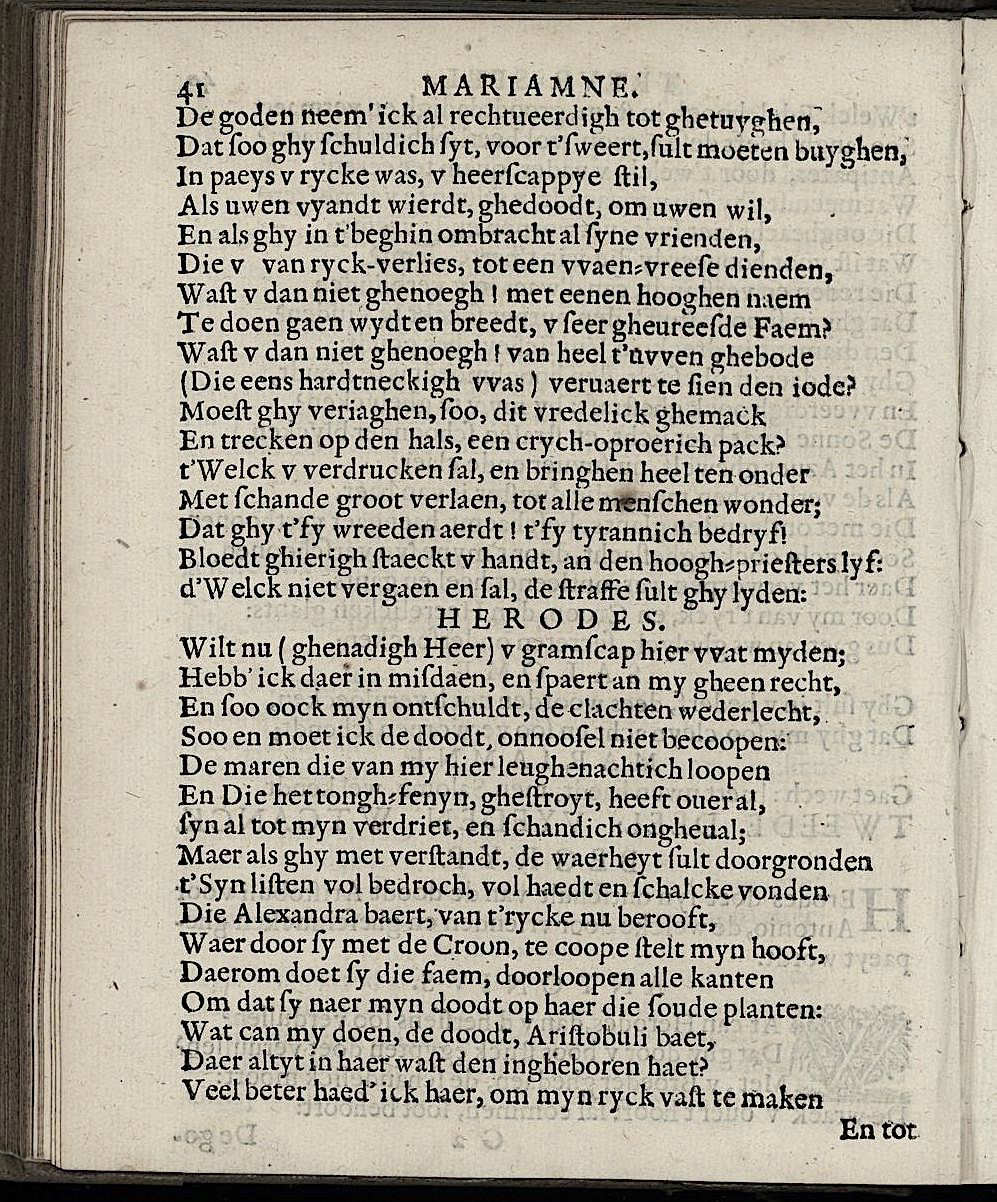 41 MARIAMNE.
De goden neem' ick al rechtueerdigh tot ghetuyghen,
Dat ſoo ghy ſchuldich ſyt, voor t'ſweert, ſult moeten buyghen,
In paeys v rycke was, v heerſcappye ſtil,
Als uwen vyandt wierdt, ghedoodt, om uwen wil,
En als ghy in t'beghin ombracht al ſyne vrienden,
Die v van ryck-verlies, tot een vvaen-vreeſe dienden,
Waſt v dan niet ghenoegh! met eenen hooghen naem
Te doen gaen wydt en breedt, v ſeer gheureeſde Faem?
Waſt v dan niet ghenoegh! van heel t'uvven ghebode
(Die eens hardtneckigh vvas) veruaert te ſien den iode?
Moeſt ghy veriaghen, ſoo, dit vredelick ghemack
En trecken op den hals, een crych-oproerich pack?
t'Welck v verdrucken ſal, en bringhen heel ten onder
Met ſchande groot verlaen, tot alle menſchen wonder;
Dat ghy t'ſy wreeden aerdt! t'ſy tyrannich bedryf!
Bloedt ghierigh ſtaeckt v handt, an den hoogh-prieſters lyf:
d'Welck niet vergaen en ſal, de ſtraffe ſult ghy lyden:
HERODES.
Wilt nu (ghenadigh Heer) v gramſcap hier vvat myden;
Hebb' ick daer in miſdaen, en ſpaert an my gheen recht,
En ſoo oock myn ontſchuldt, de clachten wederlecht,
Soo en moet ick de doodt, onnooſel niet becoopen:
De maren die van my hier leughenachtich loopen
En Die het tongh-fenyn, gheſtroyt, heeft oueral,
ſyn al tot myn verdriet, en ſchandich ongheual;
Maer als ghy met verſtandt, de waerheyt ſult doorgronden
t'Syn liſten vol bedroch, vol haedt en ſchalcke vonden
Die Alexandra baert, van t'rycke nu berooft,
Waer door ſy met de Croon, te coope ſtelt myn hooft,
Daerom doet ſy die faem, doorloopen alle kanten
Om dat ſy naer myn doodt op haer die ſoude planten:
Wat can my doen, de doodt, Ariſtobuli baet,
Daer altyt in haer waſt den ingheboren haet?
Veel beter haed' ick haer, om myn ryck vaſt te maken
En tot